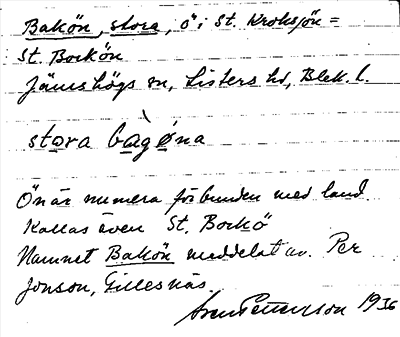 Bakön, stora, ö i St. Kroksjön =
St. Bockön
Jämshögs sn, Listers hd, Blek. l.
stora bagøna
Ön är numera förbunden med land.
Kallas även St. Bockö
Namnet Bakön meddelat av. Per
Jonson, Gillesnäs.
Sven Petterson 1936